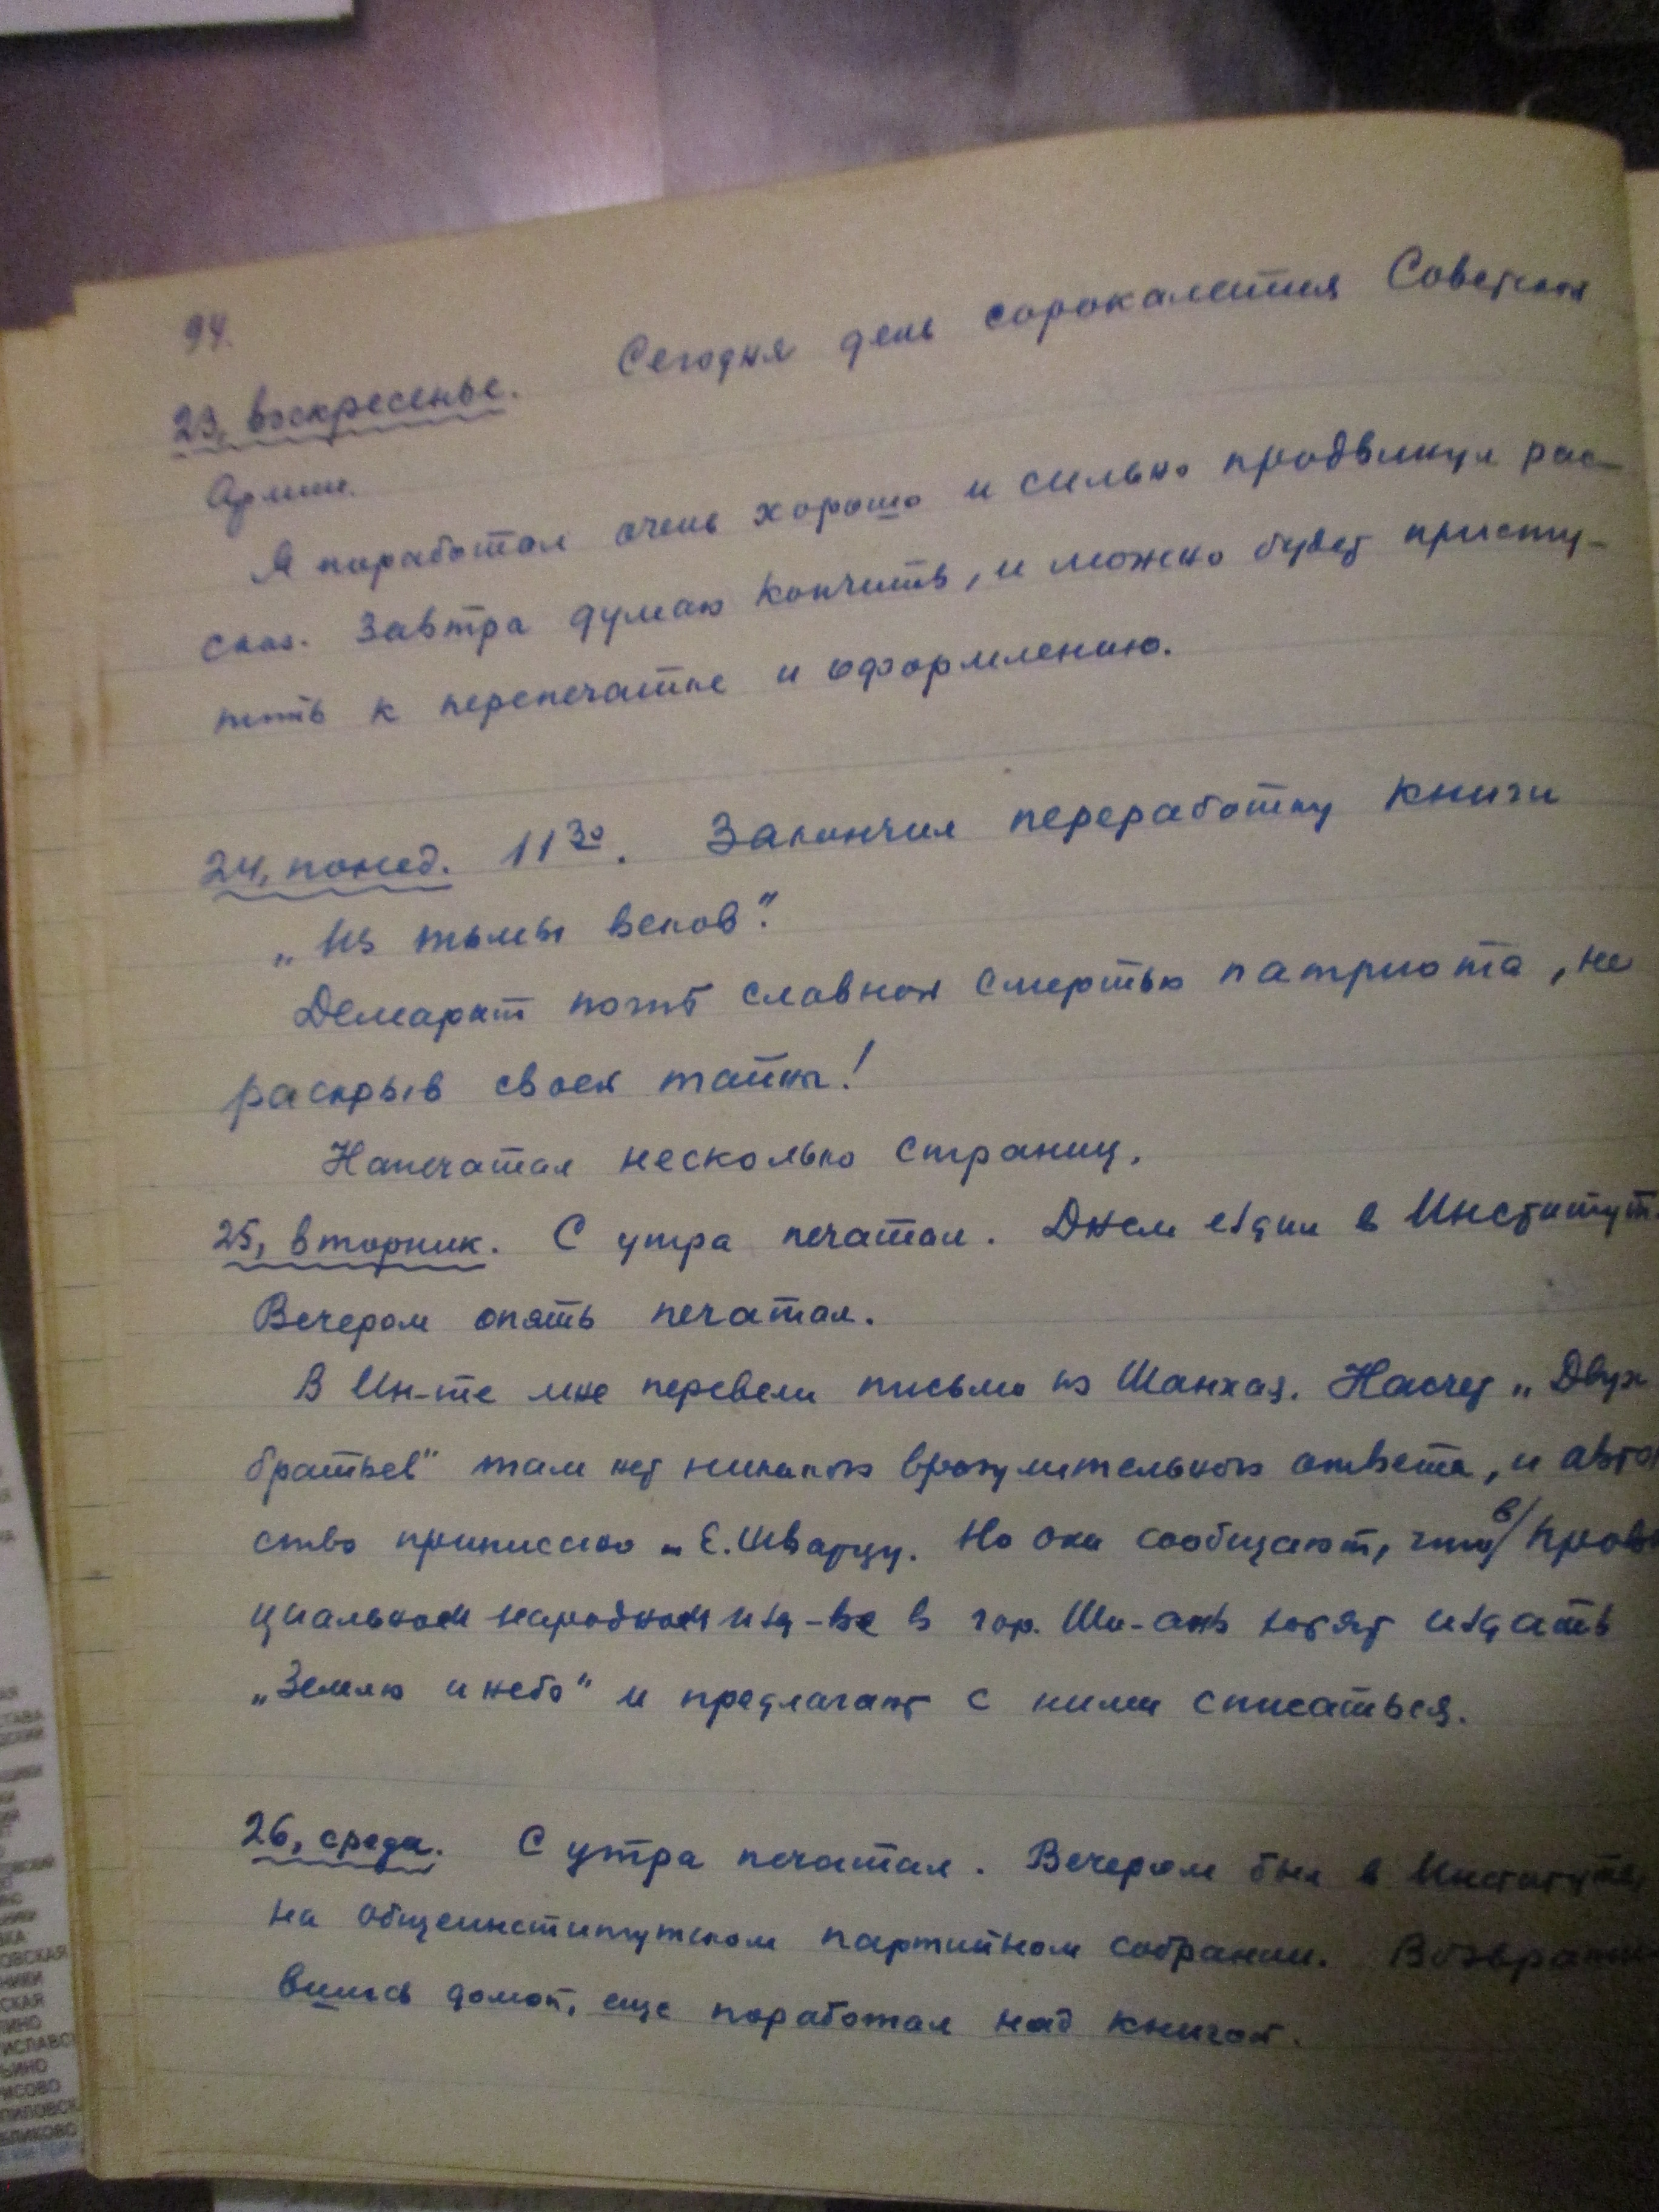 94.
23, воскресенье. Сегодня день сорокалетия Советской
Армии.
Я поработал очень хорошо и сильно продвинул рас-
сказ. Завтра думаю кончить, и можно будет присту-
пить к перепечатке и оформлению.
24, понед. 11 30. Закончил переработку книги
„Из тьмы веков".
Демарат погиб славной смертью патриота, не
раскрыв своей тайны!
Напечатал несколько страниц.
25, вторник. С утра печатал. Днем ездил в Институт.
Вечером опять печатал.
В Ин-те мне перевели письмо из Шанхая. Насчет „Двух
братьев" там нет никакого вразумительного ответа, и автор
ство приписано Е. Шварцу. Но они сообщают, что в/ прови
циальном народном изд-ве в гор. Ши-ань хотят издать
„Землю и небо" и предлагают с ними списаться.
26, среда. С утра печатал. Вечером был в Институте,
на общеинститутском партийном собрании. Возврати
вшись домой, еще поработал над книгой.
СКАЯ
ЛИНО
ЬИНО
РИСОВО